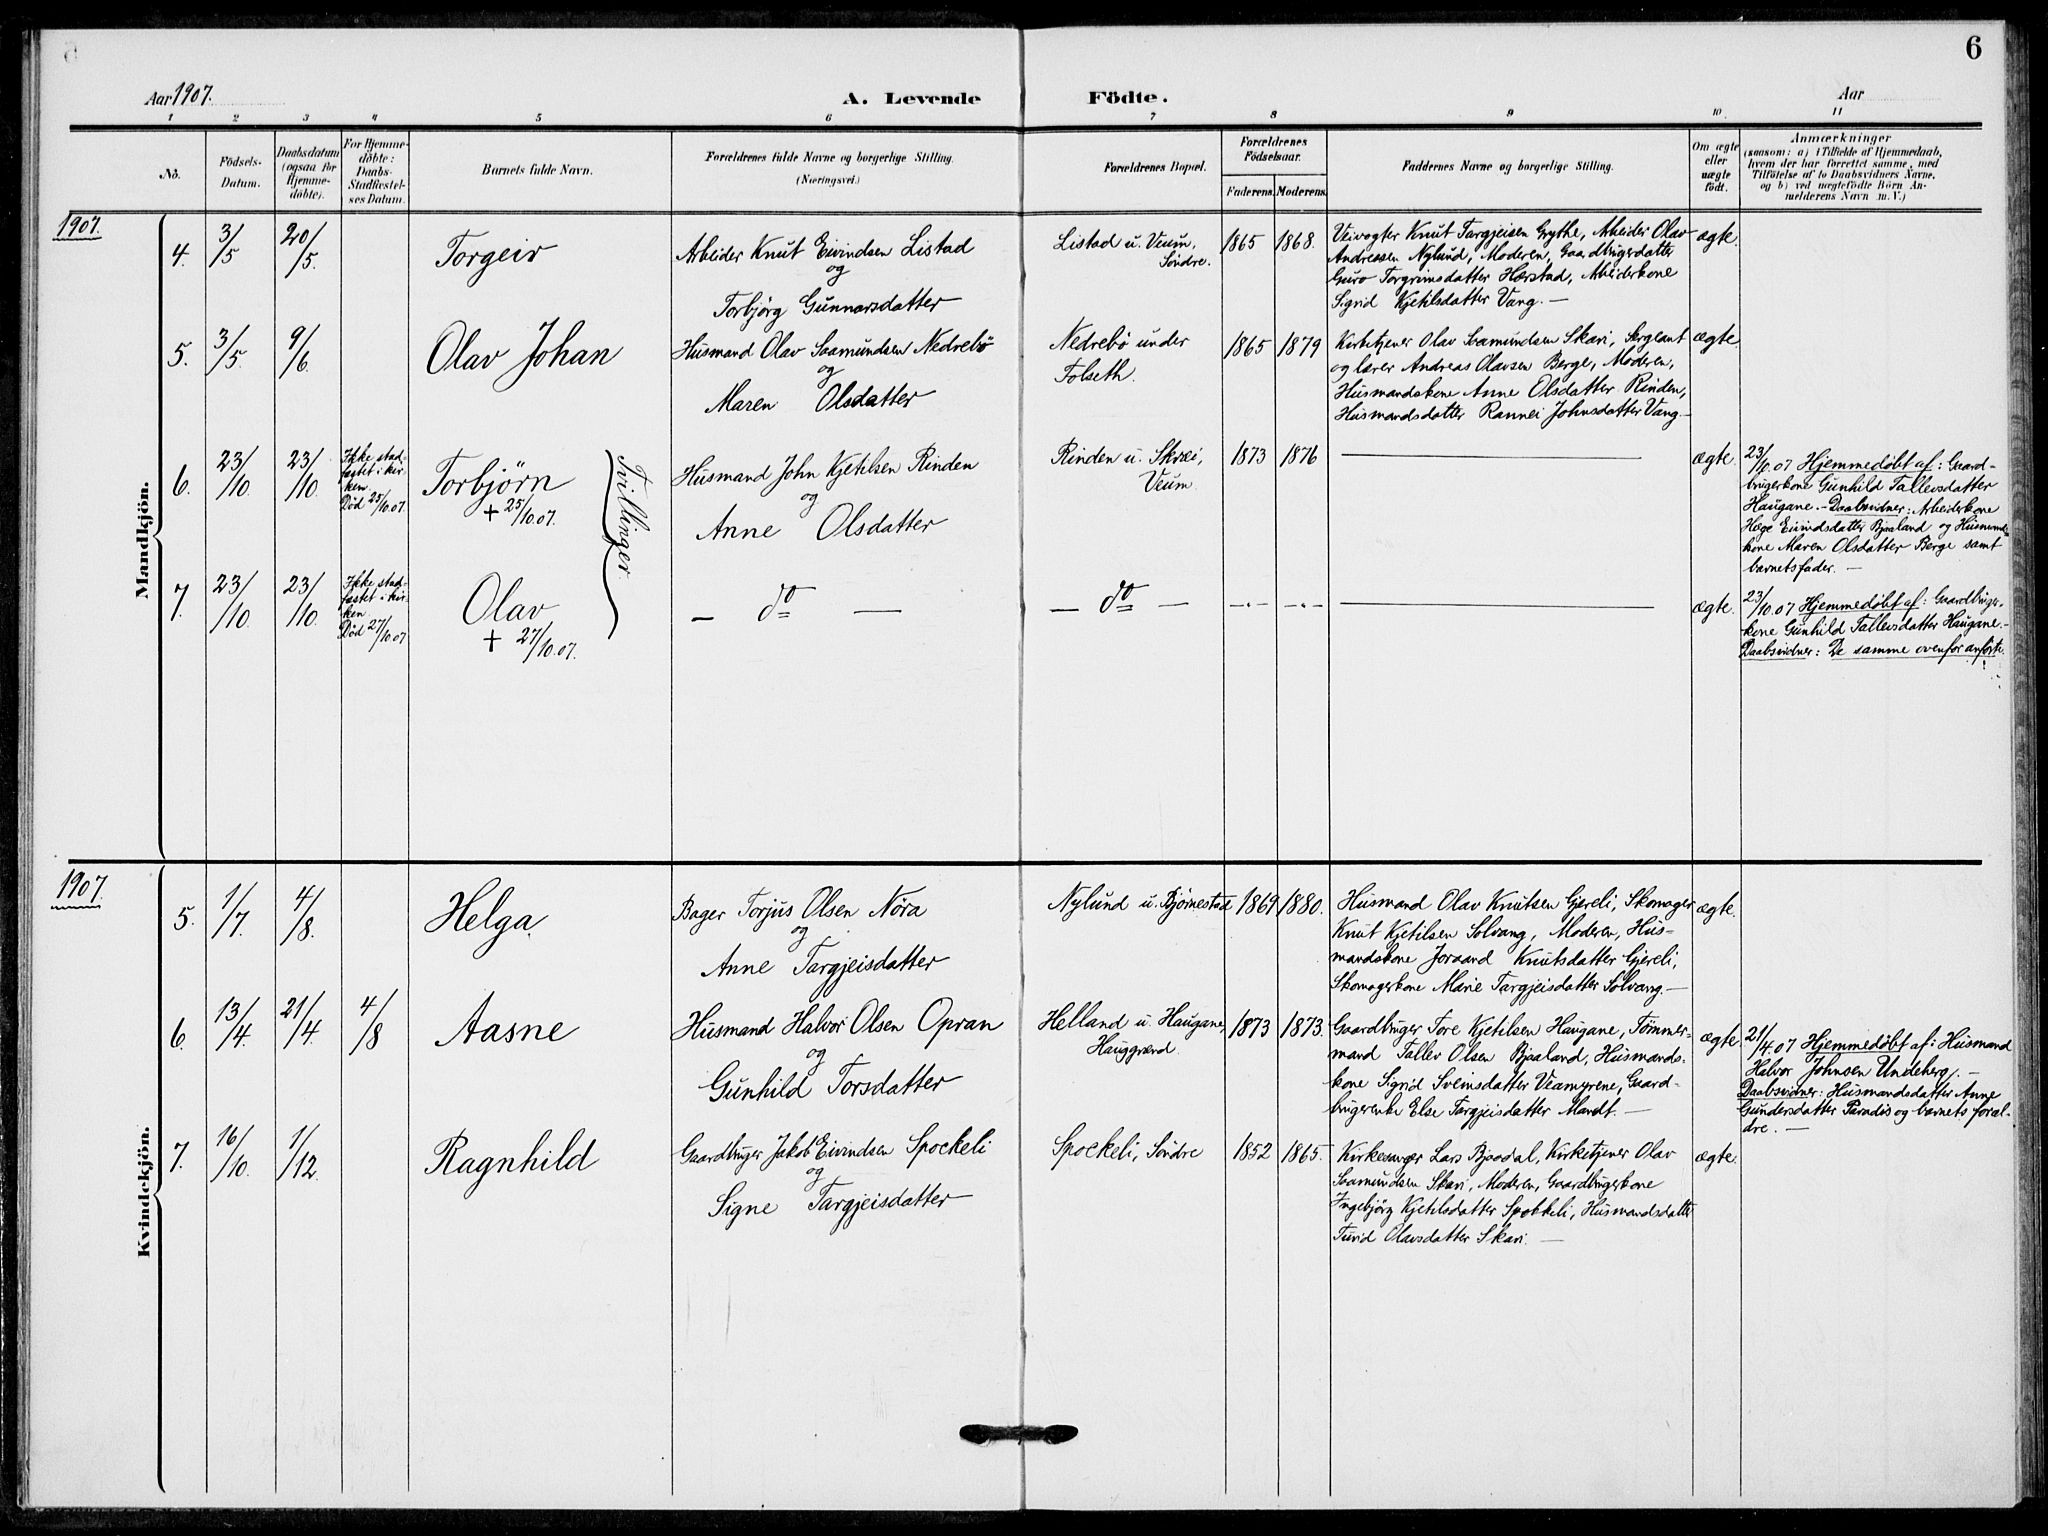 6
Aar 1907.
A. Levende Födte.
Aar
1 2 3 4 5 6 7 8 9 10 11
No.
Födsels-
Datum.
Daabsdatum
(ogsaa for
Hjemme-
döbte).
For Hjemme-
döbte:
Daabs-
Stadfæstel-
ses Datum.
Barnets fulde Navn.
Forældrenes fulde Navne og borgerlige Stilling.
(Næringsvei.)
Forældrenes Bopæl.
Forældrenes
Födselsaar.
Faderens. Moderens.
Faddernes Navne og borgerlige Stilling.
Om ægte
eller
uægte
födt.
Anmærkninger
(saasom: a) i Tilfælde af Hjemmedaab,
hvem der har forrettet samme, med
Tilföielse af to Daabsvidners Navne,
og b) ved uægtefödte Börn An-
melderens Navn m. V.)
1907.
Mandkjön.
4. 3/5 20/5. Torgeir
Arbeider Knut Eivindsen Listad
og
Torbjörg Gunnarsdatter
Listad u. Veum,
Söndre.
1865 1868.
Veivogter Knut Targjeisen Grythe, Arbeider Olav
Andreasen Nylund, Moderen, Gaardbrugerdatter
Guro Torgrimsdatter Hærstad, Arbeiderkone
Sigrid Kjetilsdatter Vang. —
ægte.
5. 3/5. 9/6. Olav Johan
Husmand Olav Saamundsen Nedrebö
og
Maren Olsdatter
Nedrebö under
Folseth.
1865 1879
Kirketjener Olav Saamundsen Skari, Sergeant
og lærer Andreas Olavsen Berge, Moderen,
Husmandskone Anne Olsdatter Rinden,
Husmandsdatter Rannei Johnsdatter Vang. —
ægte.
6. 23/10 23/10.
Ikke stad-
fæstet i kir-
ken.
Död 25/10.07.
Torbjørn
+ 25/10.07.
Tvillinger
Husmand John Kjetilsen Rinden
og
Anne Olsdatter
Rinden u. Skræi,
Veum.
1873 1876
ægte.
23/10.07 Hjemmedøbt af: Gaard-
brugerkone Gunhild Tallevsdatter
Haugane. – Daabsvidner: Arbeiderkone
Hæge Eivindsdatter Bjaaland og Husmands-
kone Maren Olsdatter Berge samt
barnets fader. —
7. 23/10. 23/10.
Ikke stad-
fæstet i kir-
ken.
Död 27/10.07
Olav
+ 27/10.07.
— do —
— do —
—"— —"—
ægte.
23/10.07 Hjemmedøbt af: Gaardbruger-
kone Gunhild Tallevsdatter Haugane. –
Daabsvidner: De samme ovenfor anförte.
1907.
Kvindekjön.
5. 1/7. 4/8. Helga.
Bager Torjus Olsen Nöra
og
Anne Targjeisdatter
Nylund u. Bjørnestad
1869 1880.
Husmand Olav Knutsen Gjereli, Skomager
Knut Kjetilsen Solvang, Moderen, Hus-
mandskone Joraand Knutsdatter Gjereli,
Skomagerkone Marie Targjeisdatter Solvang. —
ægte.
6. 13/4. 21/4. 4/8 Aasne
Husmand Halvor Olsen Opran
og
Gunhild Torsdatter
Helland u. Haugane,
Hauggrænd.
1873 1873.
Gaardbruger Tore Kjetilsen Haugane, Tømmer-
mand Tallev Olsen Bjaaland, Husmands-
kone Sigrid Sveinsdatter Veamyrene, Gaard-
brugerenke Else Targjeisdatter Mandt. —
ægte.
21/4.07 Hjemmedøbt af: Husmand
Halvor Johnsen Undeberg. —
Daabsvidner: Husmandsdatter Anne
Gundersdatter Paradis og barnets foræl-
dre. —
7. 16/10. 1/12. Ragnhild
Gaardbruger Jakob Eivindsen Spockeli
og
Signe Targjeisdatter
Spockeli, Söndre
1852 1865.
Kirkesanger Lars Bjaadal, Kirketjener Olav
Saamundsen Skari, Moderen, Gaardbrugerkone
Ingebjörg Kjetilsdatter Spokkeli, Husmandsdatter
Turid Olavsdatter Skari. —
ægte.